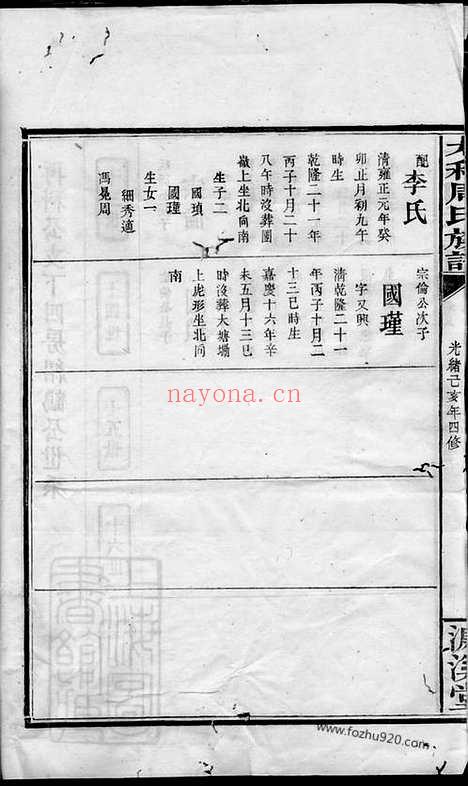 周氏族譜
光緒己亥年四修
配李氏
清雍正元年癸
卯正月初九午
時生
乾隆二十一年
丙子十月二十
八午時沒葬團
嶺上坐北向南
生子二
國瑱
國瑾
生女一
細秀適
馮晃周
宗倫公次子
國瑾
字又興
清乾隆二十一
年丙子十月二
十三巳時生
嘉慶十六年辛
未五月十三巳
時沒葬大塘塲
上虎形坐北向
南
nayona.cn
www.fozhu920.com